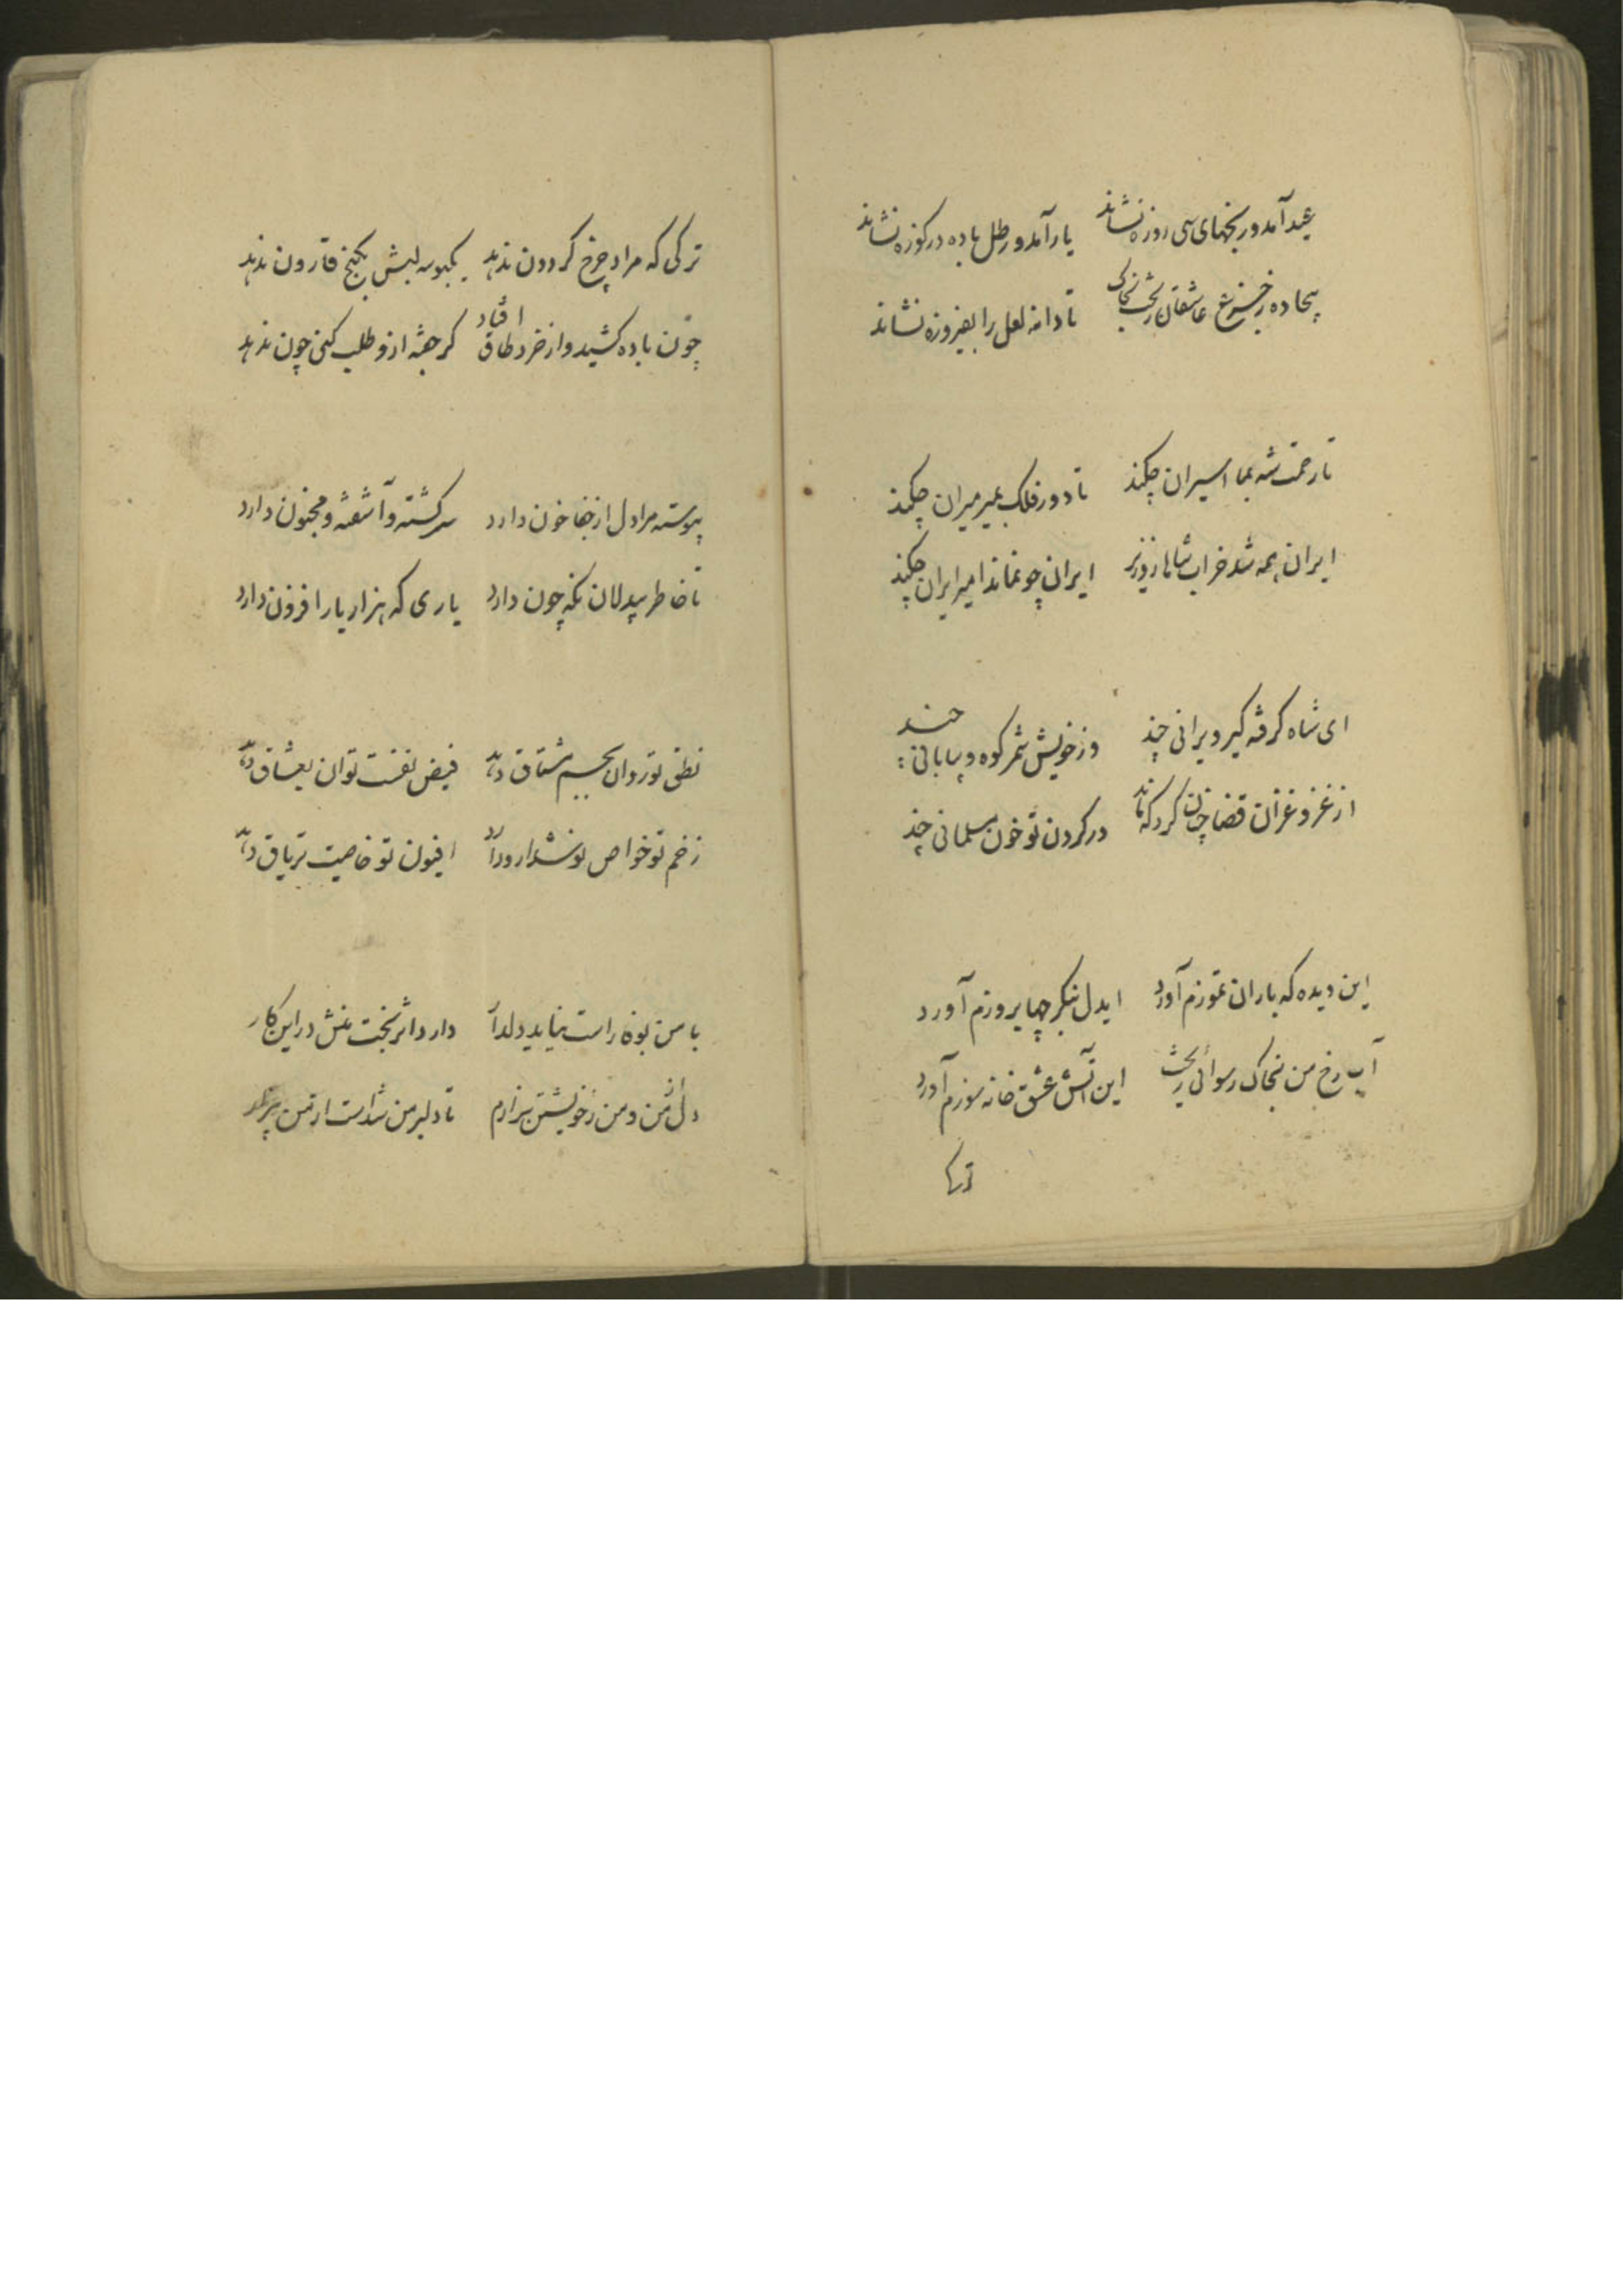 عید آمد و رنجهای سی روزه نشاند یار آمد و رطل باده در کوزه نشاند
بیجاده ز عاشقان تا دانه لعل را بفیروزه نشاند
تا رحمت شه بما اسیران چکند تا دور فلک بمیر میران چکند
ایران همه شد خراب شاها ایران چو نماند امیر ایران چکند
ای شاه گرفته گیر ویرانی چند وز خویش شمر کوه و بیابانی چند
از غز و غزان قضا چنان کرد که ماند در گردن تو خون مسلمانی چند
این دیده که باران تموزم آورد ایدل بنگر چها بروزم آورد
آب رخ من بخاک رسوائی ریخت این آتش عشق خانه سوزم آورد
ترکی که مراد چرخ گردون ندهد یکبوسه لبش بگنج قارون ندهد
چون باده کشید و از خرد طاق افتاد گر جفته ازو طلب کنی چون ندهد
پیوسته مرا دل از جفا خون دارد سرگشته و آشفته و مجنون دارد
تا خاطر بیدلان نگه چون دارد یاری که هزار یار افزون دارد
نطق تو روان بجسم مشتاق دهد فیض نفست توان بعشاق دهد
زخم تو خواص نوشدارو دارد افیون تو خاصیت تریاق دهد
با من بوفا راست نیاید دلدار دارد اثر بخت منش در این کار
دل از من و من ز خویشتن بیزارم تا دلبر من شد است از من بیزار